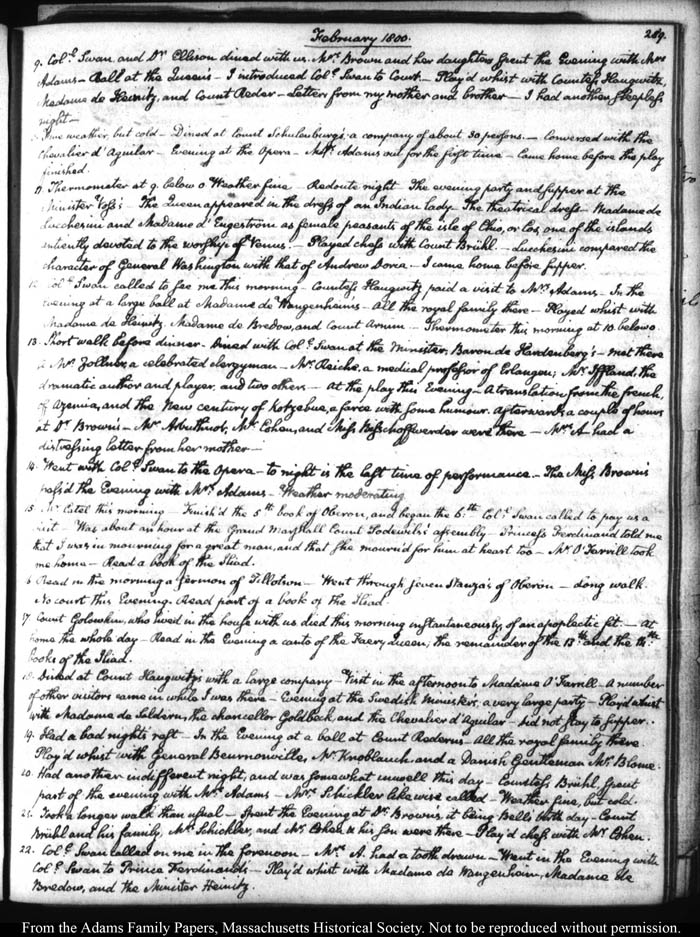 February 1800.
289.
9. Col.l Swan and Dr Ellison dined with us. Mrs Brown and her daughters spent the Evening with Mrs
Adams — Ball at the Queen's — I introduced Col.l Swan to Court — Play'd whist with Countess Haugwitz,
Madame de Heinitz, and Count Reder — Letters from my mother and brother — I had another sleepless
night —
Fine weather, but cold — Dined at Count Schulenburg's; a company of about 30 persons. — Conversed with the
Chevalier d'Aguilar — Evening at the Opera — Mrs Adams out for the first time — Came home before the play
finished.
11. Thermometer at 9. below 0. Weather fine — Redoute night. The evening party and supper at the
Minister Voss's. The Queen appeared in the dress of an Indian lady. The theatrical dress — Madame de
Lucchesini and Madame d'Engestrom as female peasants of the isle of Chio, or Cos, one of the islands
anciently devoted to the worship of Venus. — Played chess with Count Brühl. — Lucchesini compared the
character of General Washington with that of Andrew Doria. — I came home before supper.
12. Col.l Swan called to see me this morning — Countess Haugwitz paid a visit to Mrs Adams — In the
evening at a large ball at Madame de Wangenheim's — All the royal family there — Played whist with
Madame de Heinitz, Madame de Bredow, and Count Arnim — Thermometer this morning at 10. below 0.
13. Short walk before dinner — Dined with Col.l Swan at the Minister, Baron de Hardenberg's — met there
a Mr Zollner, a celebrated clergyman — Mr Reiche, a medical professor of Erlangen; Mr Iffland, the
dramatic author and player, and two others — At the play this Evening — A translation from the french,
of Azemia, and the New century of Kotzebue, a farce with some humour. Afterwards a couple of hours
at Dr Brown's — Mr Arbuthnot, Mr Cohen, and Miss Bischoffwerder were there — Mrs A. had a
distressing letter from her mother —
14. Went with Col.l Swan to the Opera — to night is the last time of performance. — The Miss Brown's
pass'd the Evening with Mrs Adams — Weather moderating
15. Mr Catel this morning — Finish'd the 5th book of Oberon, and began the 6th Col.l Swan called to pay us a
visit — Was about an hour at the Grand Marshall Count Podewils's assembly — Princess Ferdinand told me
that I was in mourning for a great man, and that she mourn'd for him at heart too — Mr O'Farrill took
me home — Read a book of the Iliad.
6 Read in the morning a sermon of Tillotson — Went through seven stanza's of Oberon — Long walk.
No court this Evening. Read part of a book of the Iliad.
17. Count Golowkin, who lived in the house with us died this morning instantaneously, of an apoplectic fit. — At
home the whole day — Read in the Evening a canto of the Faery Queen; the remainder of the 13th and the 14th
books of the Iliad.
18. Dined at Count Haugwitz's with a large company — Visit in the afternoon to Madame O'Farrill — A number
of other visitors came in while I was there — Evening at the Swedish Minister's, a very large party — Play'd whist
with Madame de Soldern, the chancellor Goldbeck and the Chevalier d'Aguilar — did not stay to supper.
19. Had a bad night's rest — In the Evening at a ball at Count Rederns — All the royal family there —
Play'd whist with General Beurnonville, Mr Knoblauch and a Danish Gentleman Mr Blome.
20. Had another indifferent night, and was somewhat unwell this day — Countess Brühl, spent
part of the evening with Mrs Adams — Mrs Schickler likewise called — Weather fine, but cold.
21. Took a longer walk than usual — Spent the Evening at Dr Browns, it being Bell's birth day — Count
Brühl and his family, Mrs Schickler, and Mr Cohen & his son were there — Play'd chess with Mr Cohen.
22. Col.l Swan called on me in the forenoon — Mrs A. had a tooth drawn — Went in the Evening with
Col.l Swan to Prince Ferdinands — Play'd whist with Madame de Wangenheim, Madame de
Bredow, and the Minister Heinitz.
From the Adams Family Papers, Massachusetts Historical Society. Not to be reproduced without permission.